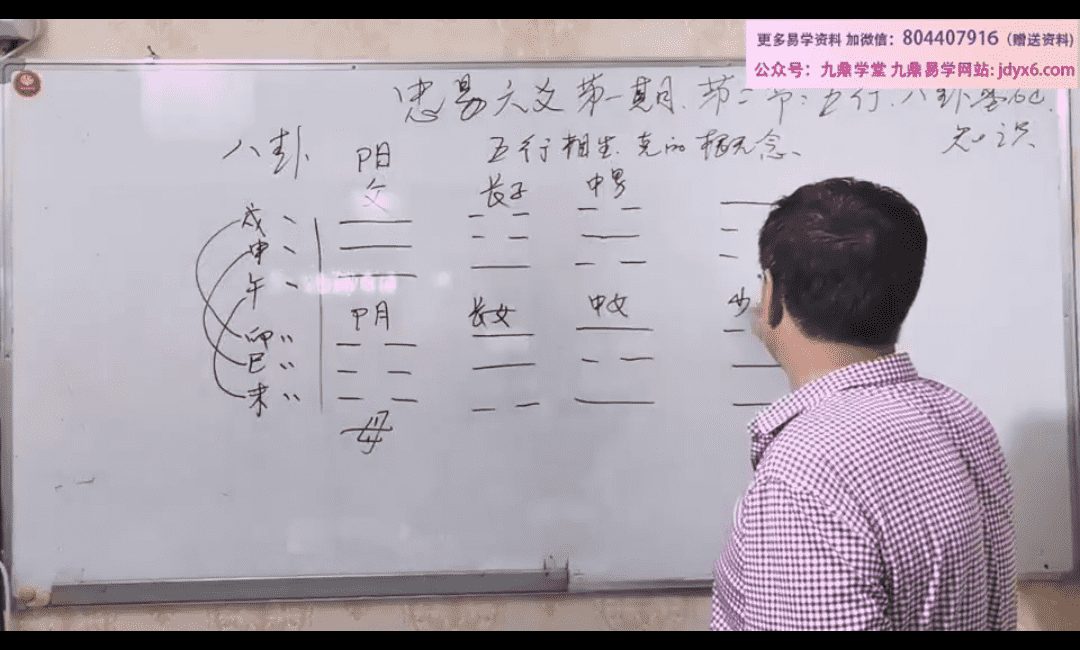 更多易学资料 加微信：804407916（赠送资料）
公众号：九鼎学堂 九鼎易学网站：jdyx6.com
忠易六爻第一期.第二节：五行.八卦基础
知识
八卦 阳 五行相生.克的概念、
父 长子 中男
戌、
申、
午、
阴 长女 中女 少
卯〃
巳〃
未〃
母